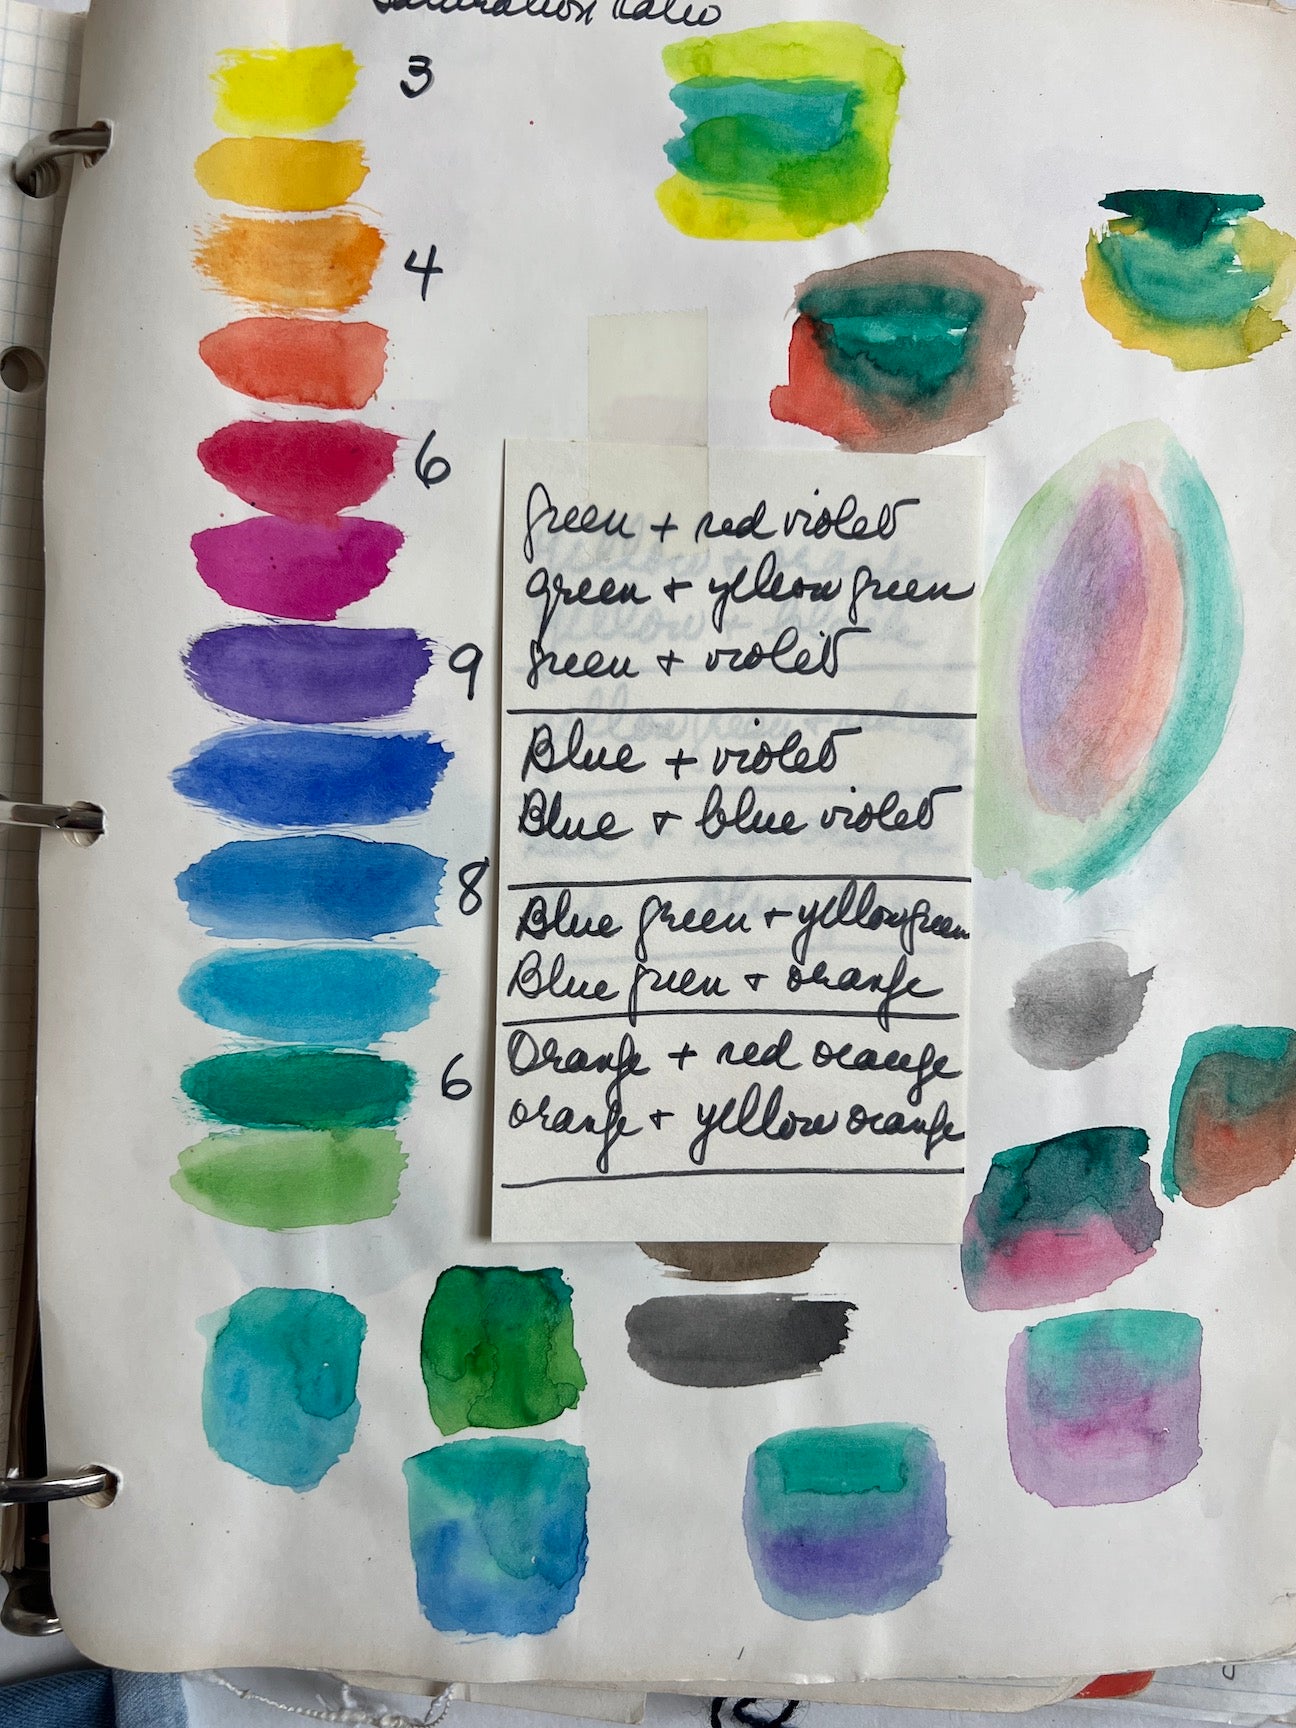 Saturation Ratio
3
4
6
9
8
6
green + red violet
green + yellow green
green + violet
Blue + violet
Blue + blue violet
Blue green + yellow green
Blue green + orange
Orange + red orange
orange + yellow orange